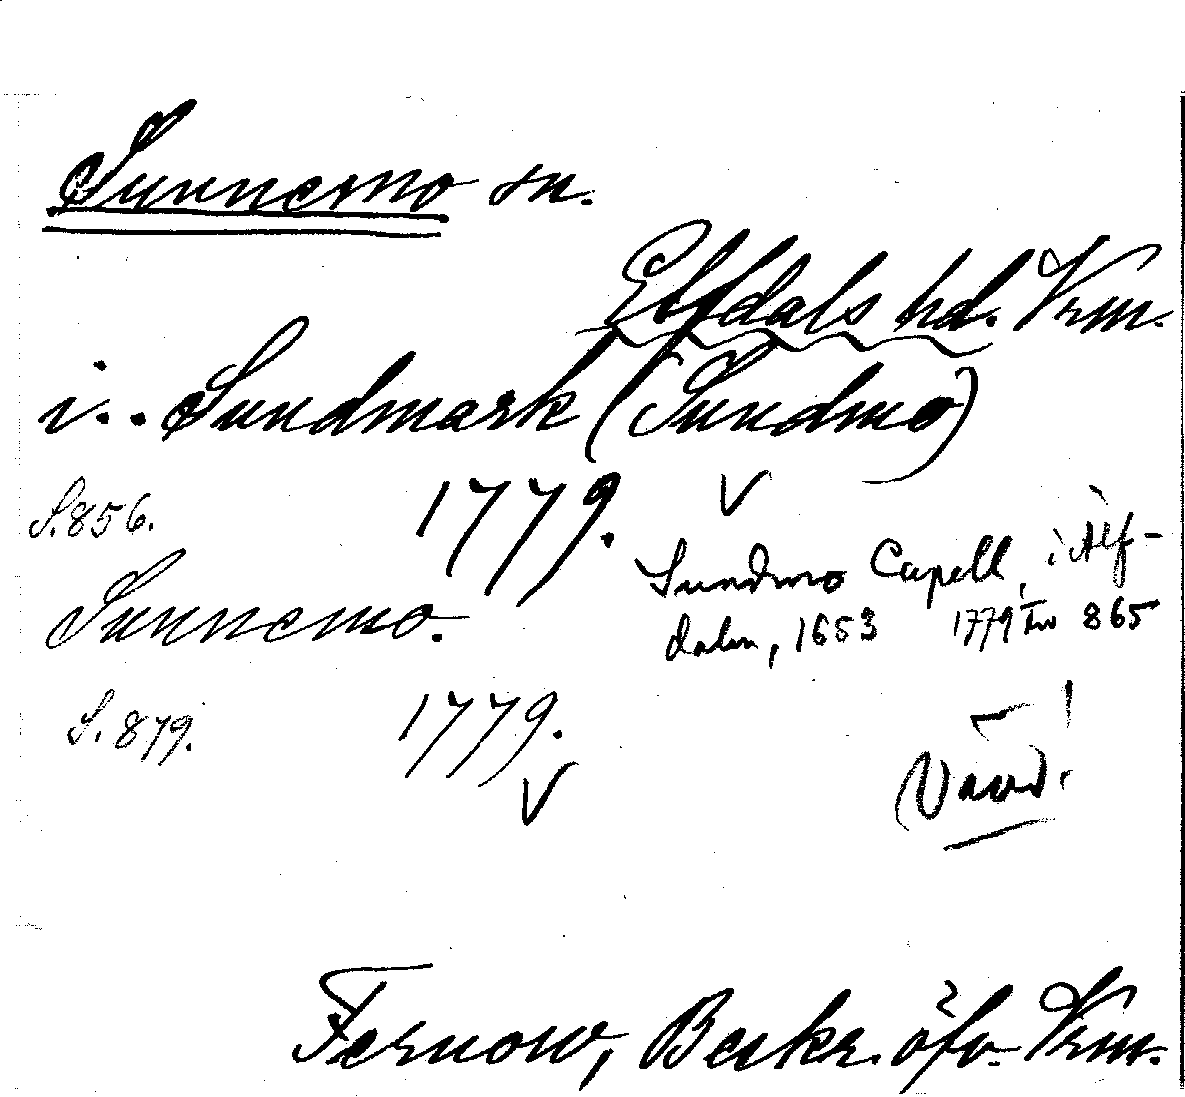 Sunnemo sn.
Elfdals hd. Vrm.
i. Sundmark (Sundmo)
S. 856. 1779.
Sundmo Capell, i Älf-
dalen, 1653 1779 Fw 865
Sunnemo.
S. 879. 1779.
Fernow, Beskr. öfv. Vrm.